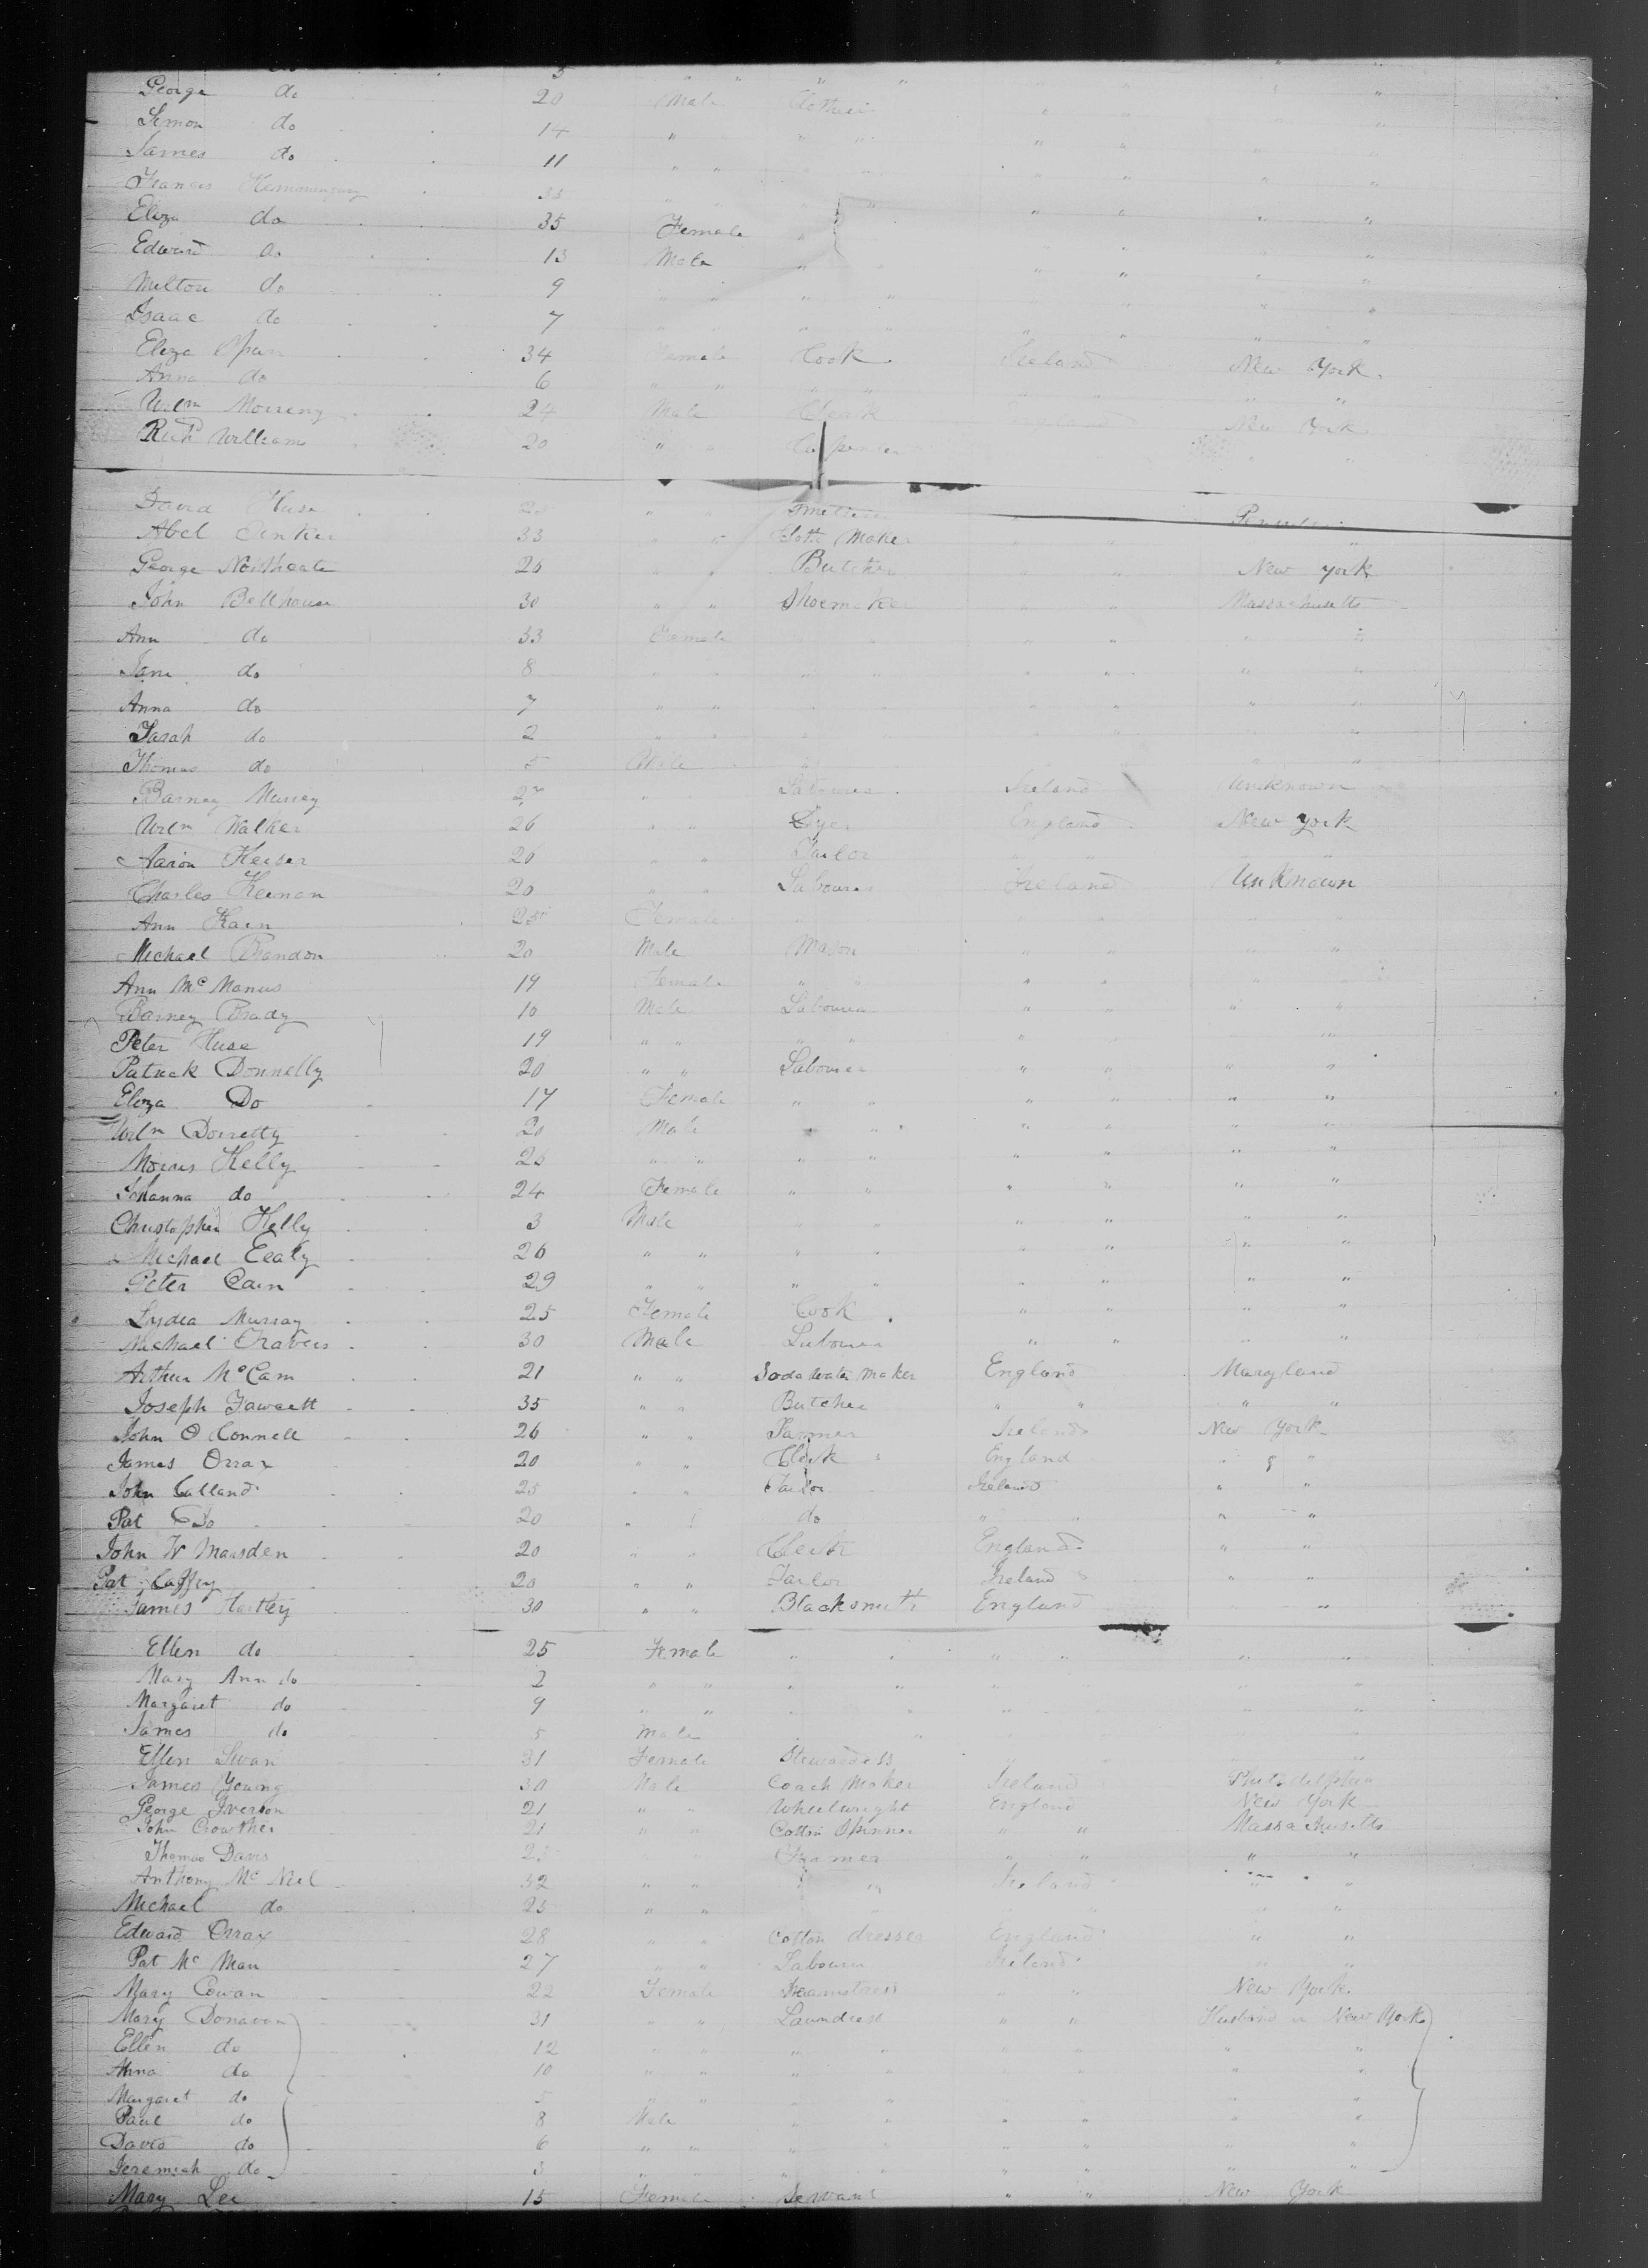 5 " " " " " "
George do 20 Male Clothier " " " "
Simon do 14 " " " " " "
James do 11 " " " " " " " "
Francis 35 " " " " " " " "
Eliza do 35 Female " " " " "
Edward do 13 Male " " " " "
Milton do 9 " " " " " " " "
Isaac do 7 " " " " " " " "
Eliza 34 Female Cook Ireland New York
Anna do 6 " " " " " " " "
Willm 24 Male Clerk England New York
Richd Williams 20 " " Carpenter " "
David Huse " "
Abel 33 " " Cloth Maker " " " "
George Northcate 20 " " Butcher " " New York
John Bellhouse 30 " " Shoemaker " " Massachusetts
Ann do 33 Female " " " " "
Jane do 8 " " " " " " " "
Anna do 7 " " " " " " " "
Sarah do 2 " " " " " " " "
Thomas do 5 Male " " "
Barney Murrey " Labourer Ireland Unknown
Willm Walker 26 " " Dyer England New York
Aaron 20 " " Tailor " " " "
Charles Keenan 20 " " Labourer Ireland Unknown
Ann Kain 25 Female " " " "
Michael Brandon 20 Male Mason " " " "
Ann McManus 19 Female " " " " " "
Barney Brady 10 Male Labourer " " " "
Peter Huse 19 " " " " " " " "
Patrick Donnelly 20 " " Labourer " " " "
Eliza Do 17 Female " " " " " "
Willm Dorretty 20 Male " " " " " "
Morris Kelly 26 " " " " " " " "
Johanna do 24 Female " " " " " "
Christopher Kelly 3 Male " " " " " "
Michael 26 " " " " " " " "
Peter Cain 29 " " " " " " " "
Lydia Murray 25 Female Cook " " " "
Michael Travers 30 Male Labourer " " " "
Arthur McCam 21 " " Soda Water Maker England Maryland
Joseph Fawcett 35 " " Butcher " " " "
John O Connell 26 " " Farmer Ireland New York
James Orrax 20 " " Clerk England " "
John Calland 25 " " Tailor Ireland " "
Pat Do 20 " " do " " " "
John W Marsden 20 " " Clerk England " "
Pat Caffry 20 " " Tailor Ireland " "
James Hartley 30 " " Blacksmith England "
Ellen do 25 Female " " " " " "
Mary Ann do 2 " " " " " "
Margaret do 9 " " " " " " " "
James do 5 Male " "
Ellen Swan 31 Female Stewardess " " " "
James Young 30 Male Coach Maker Ireland Philadelphia
George Iverson 21 " " Wheelwright England New York
John Crowther 21 " " Cotton Spinner " " Massachusetts
Thomas Davis Farmer " " " "
Anthony McNeil 32 " " " " Ireland " "
Michael do 25 " " " " " "
Edward Orrax 28 " " Cotton dresser England " "
Pat McMan 27 " " Labourer Ireland " "
Mary Cowan 22 Female Seamstress " " New York
Mary Donavan 31 " " Laundress " " Husband in New York
Ellen do 12 " " " " " " " "
Anna do 10 " " " " " " " "
Margaret do 5 " " " " " " " "
Paul do 8 Male " " " " " "
David do 6 " " " " " " " "
Jeremiah do 3 " " " " " " " "
Mary Lee 15 Female Servant " " New York